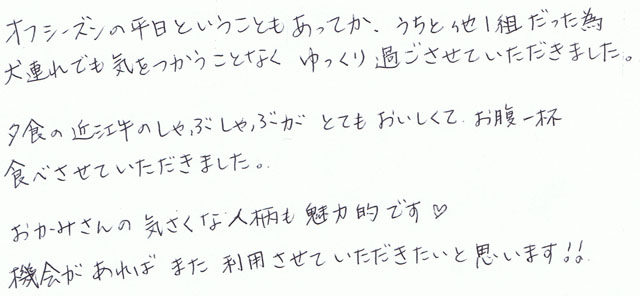 オフシーズンの平日ということもあってか、うちと他1組だった為
犬連れでも気をつかうことなく ゆっくり過ごさせていただきました。
夕食の近江牛のしゃぶしゃぶが とてもおいしくて、お腹一杯
食べさせていただきました。
おかみさんの気さくな人柄も魅力的です♡
機会があれば また 利用させていただきたいと思います!!